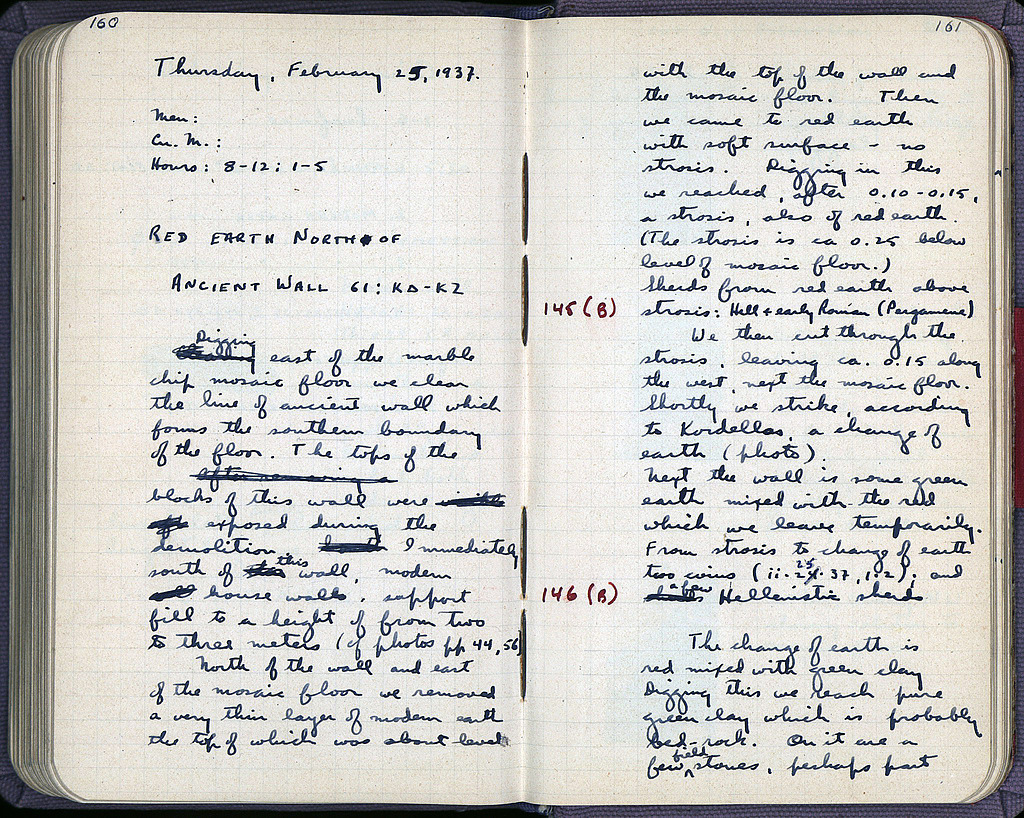 160
Thursday, February 25, 1937.
Men:
Cu. M.:
Hours: 8-12; 1-5
RED EARTH NORTH OF
ANCIENT WALL 61: KΔ-KZ
Digging
east of the marble
chip mosaic floor we clear
the line of ancient wall which
forms the southern boundary
of the floor. The tops of the
after removing a
blocks of this wall were
exposed during the
demolition. Immediately
south of this wall, modern
house walls, support
fill to a height of from two
to three meters (cf photos pp 44, 56)
North of the wall and east
of the mosaic floor we removed
a very thin layer of modern earth
the top of which was about level
161
with the top of the wall and
the mosaic floor. Then
we came to red earth
with soft surface - no
strosis. Digging in this
we reached, after 0.10-0.15,
a strosis, also of red earth.
(The strosis is ca 0.25 below
level of mosaic floor.)
Sherds from red earth above
145 (B) strosis: Hell + early Roman (Pergamene)
We then cut through the
strosis, leaving ca. 0.15 along
the west, next the mosaic floor.
Shortly we strike, according
to Kordellas, a change of
earth (photo).
Next the wall is some green
earth mixed with the red
which we leave temporarily.
From strosis to change of earth
two coins (ii.25.37, 1,2); and
146 (B) a few Hellenistic sherds
The change of earth is
red mixed with green clay
Digging this we reach pure
green clay which is probably
bed-rock. On it are a
few field stones, perhaps part